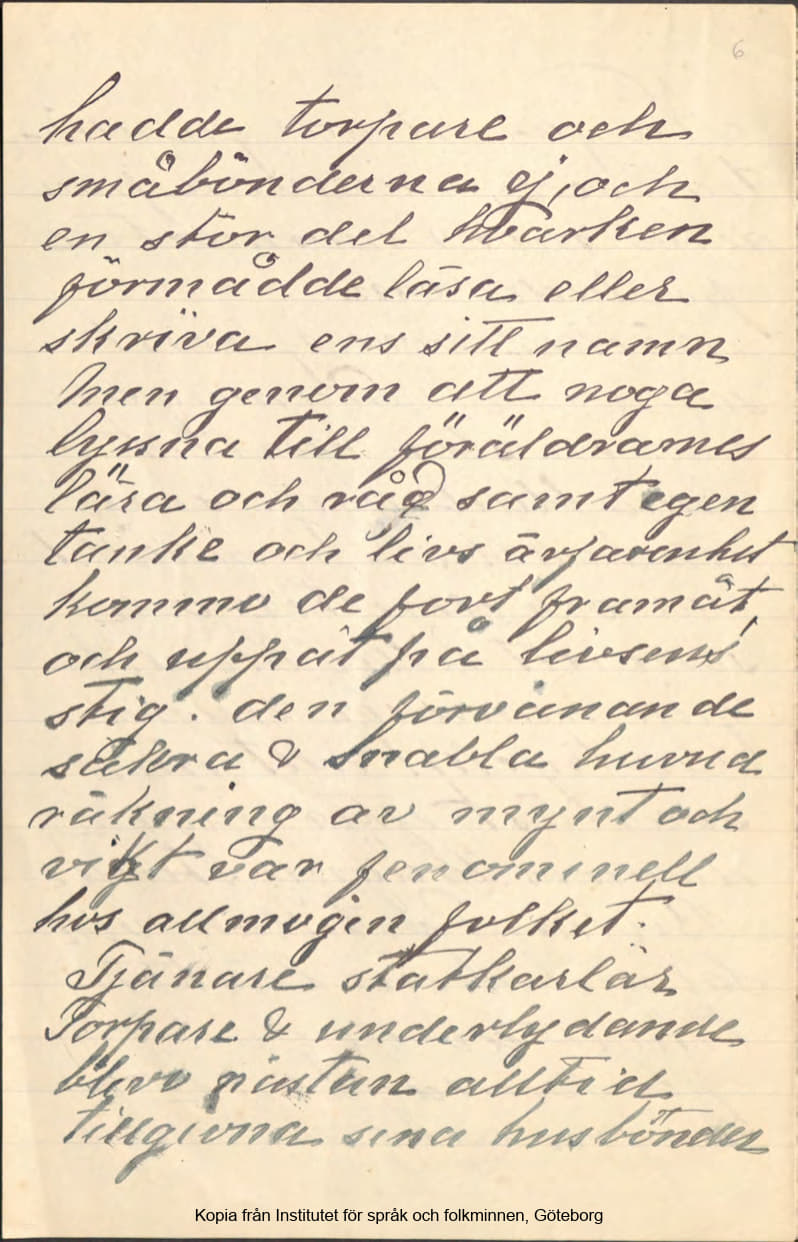 6
hadde torpare och
småbönderna ej, och
en stor del hvarken
förmådde läsa eller
skriva ens sitt namn
Men genom att noga
lyssna till föräldrarnes
lära och råd samt egen
tanke och livs ärfarenhet
kommo de fort framåt,
och uppåt på livsens
stig. den förvånande
säkra & snabba huvud
räkning av mynt och
vikt var fenominell
hos allmogen folket.
Tjänare statkarlar
Torpare & underlydande
blevo nästan alltid
tillgivna sina husbönder
Kopia från Institutet för språk och folkminnen, Göteborg